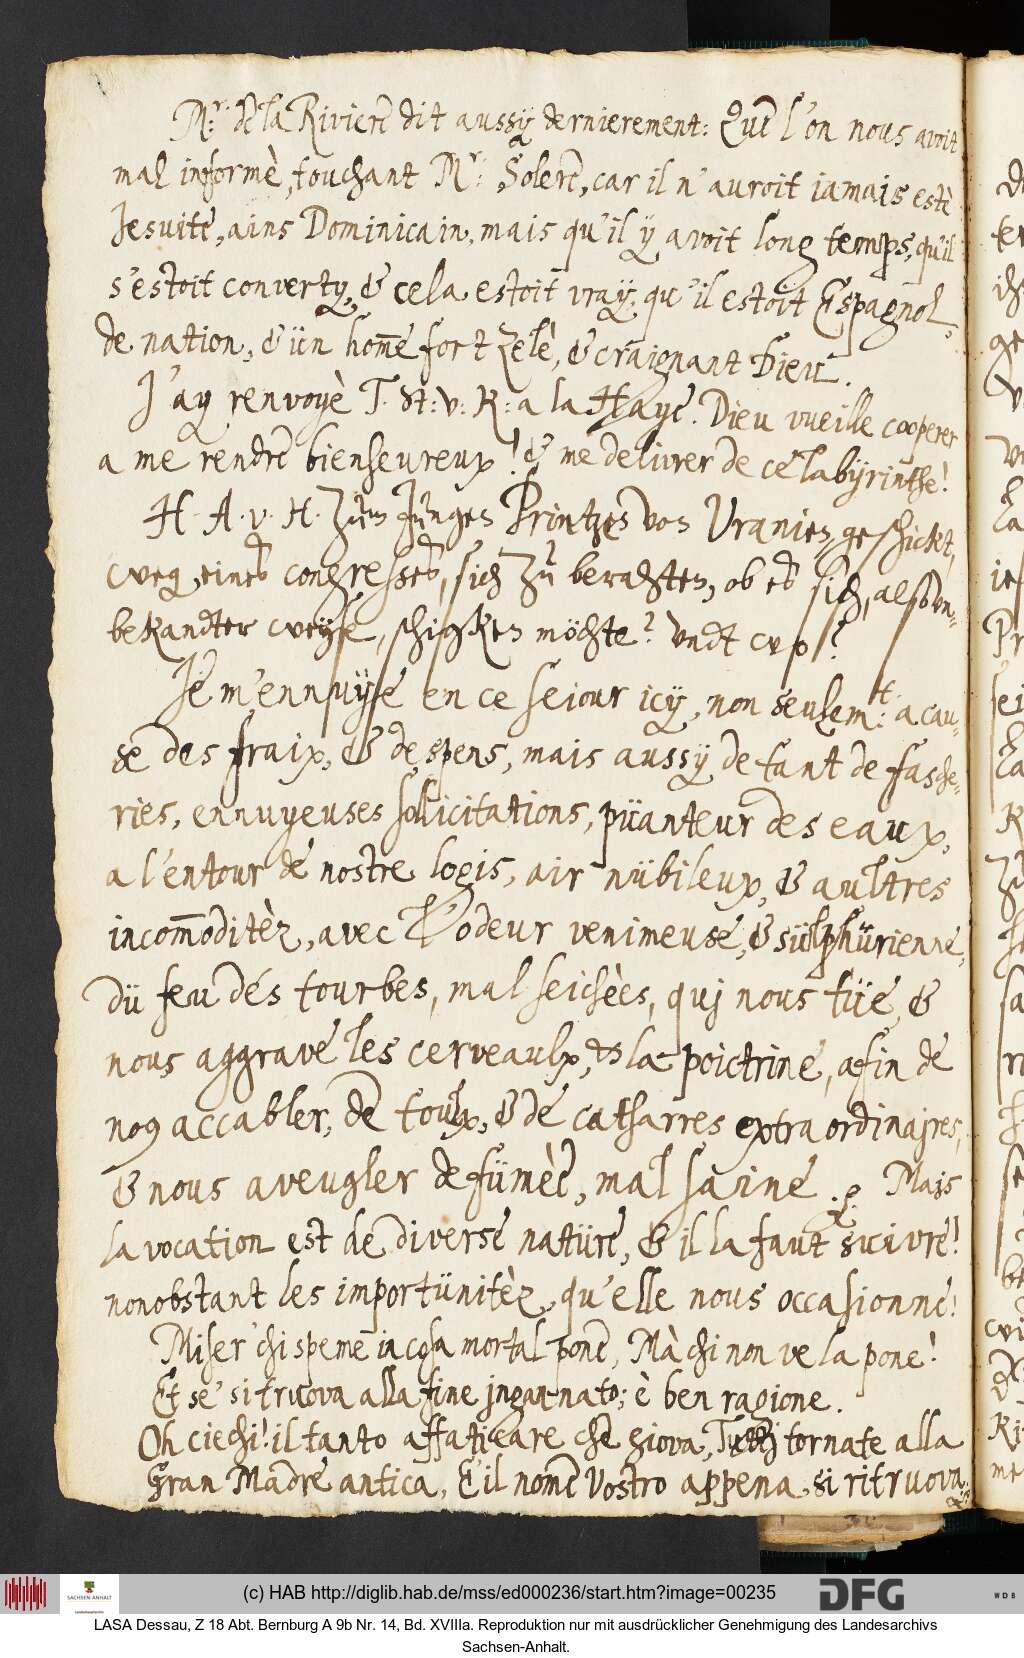 Mr: de la Riviere dit aussÿ dernierement: Que l'on nous avoit
mal informè, touchant Mr: Solere, car il n'auroit iamais estè
Jesuite, ains Dominicain, mais qu'il ÿ avoit long temps, qu'il
s'estoit converty, & cela estoit vraÿ, qu'il estoit Espagnol,
de nation, & ün hom̅e fort zelè, & craignant Dieu.
J'ay renvoyè T. St: v: R: a la Haye. Dieu vueille cooperer
a me rendre bienheureux! & me delivrer de ce labÿrinthe!
H. A. v. H. zum Jungen Printzen von Uranien, geschickt,
weg, eines congresses, sich zu berahten, ob es sich, also un-
bekandter weyse, schigken möchte? Undt wo?
Je m'ennuÿe en ce seiour icÿ, non seulemt: a cau-
se des fraix, & despens, mais aussÿ de tant de fasche-
ries, ennuyeuses sollicitations, püanteur des eaux,
a l'entour de nostre logis, air nübileux, & aultres
incom̅oditèz, avec l'odeur venimeuse, & sülphürienne,
dü feu des tourbes, mal seichèes, quj nous tüe, &
nous aggrave les cerveaulx, & la poictrine, afin de
no9 accabler, de toulx, & de catharres extraordinajres,
& nous aveugler de fümèe, mal saine. &. Mais
la vocation est de diverse natüre, & il la faut suivre!
nonobstant les importünitèz, qu'elle nous occasionne!
Miser' chi speme in cosa mortal pone, Mà chi non ve la pone!
Et se' si truova alla fine jngannato; è ben ragione.
Oh ciechi! il tanto affaticare che giova, Tuttj tornate alla
Gran Madre antica, E'il nome Vostro appena, si ritruova.
(c) HAB http://diglib.hab.de/mss/ed000236/start.htm?image=00235
SACHSEN-ANHALT
DFG
WDB
LASA Dessau, Z 18 Abt. Bernburg A 9b Nr. 14, Bd. XVIIIa. Reproduktion nur mit ausdrücklicher Genehmigung des Landesarchivs
Sachsen-Anhalt.